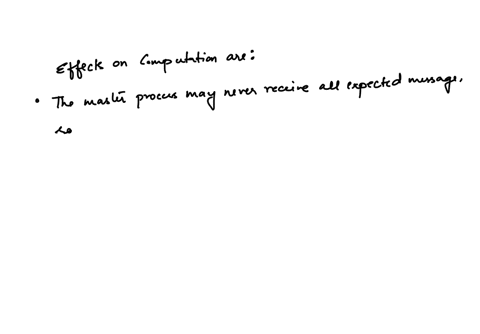 Effects on Computation are:
• The master process may never receive all expected message,
so